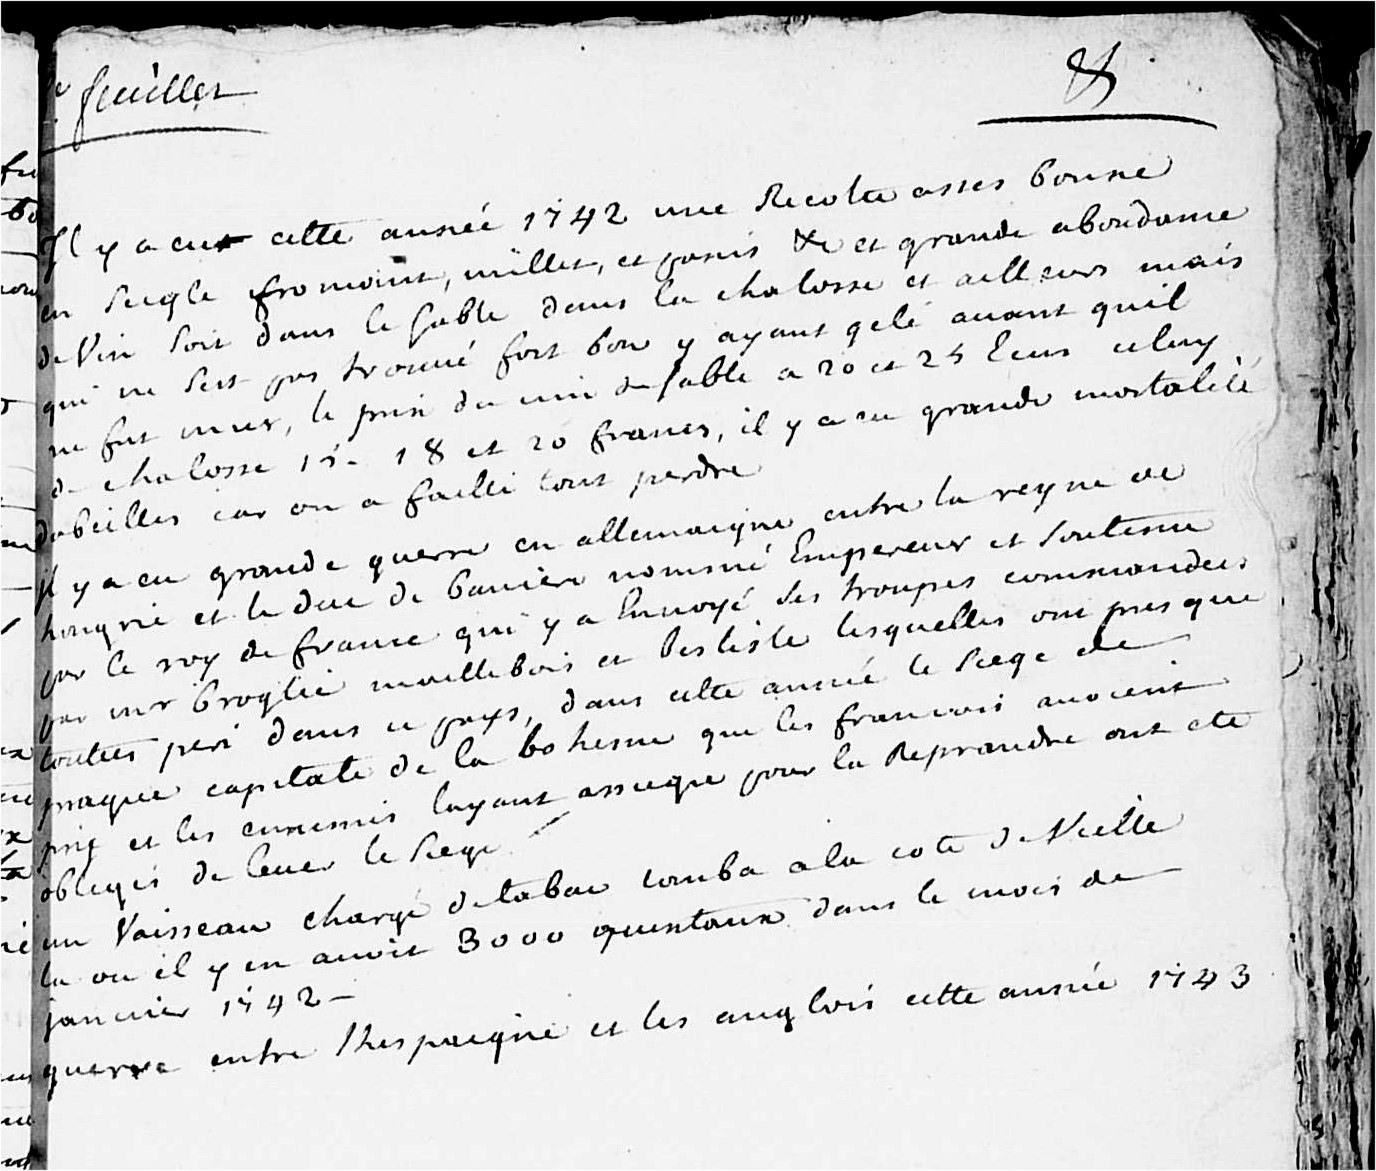 e feuillet
8
Il y a eu cette année 1742 une Recolte asses bonne
en seigle fromaint, millet, et panis &c et grande abondance
de Vin soit dans le sable dans la chalosse et allieurs mais
qui ne sest pas trouvé fort bon y ayant gelé avant quil
ne fut mur, le prix du vin de sable a 20 et 25 Ecus celuy
de chalosse 15 - 18 et 20 francs, il y a eu grande mortalité
dabeilles car on a failli tout perdre
il y a eu grande guerre en allemaigne entre la reyne de
hongrie et le duc de baviere nommé Empereur et soutenu
par le roy de france qui y a Envoyé ses troupes commandees
par mr broglie maillebois et belisle lesquelles ont presque
touttes peri dans ce pays, dans cette année le siege de
prague capitale de la boheme que les francois avoient
pris et les ennemis layant assiege pour la Reprandre ont eté
obligés de lever le siege
un Vaisseau chargé de tabac tomba a la cote de Vielle
la ou il y en avoit 3000 quintaux dans le mois de
janvier 1742 -
guerre entre lhespaigne et les anglois cette année 1743